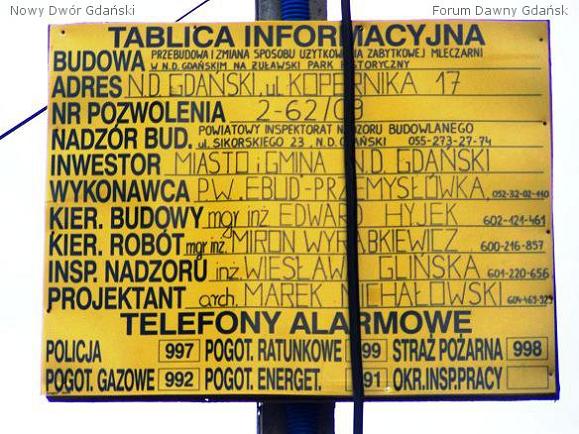 Nowy Dwór Gdański
Forum Dawny Gdańsk
TABLICA INFORMACYJNA
BUDOWA PRZEBUDOWA I ZMIANA SPOSOBU UŻYTKOWANIA ZABYTKOWEJ MLECZARNI
W N.D. GDAŃSKIM NA ŻUŁAWSKI PARK HISTORYCZNY
ADRES N.D. GDAŃSKI, ul. KOPERNIKA 17
NR POZWOLENIA 2-62/09
NADZÓR BUD. POWIATOWY INSPEKTORAT NADZORU BUDOWLANEGO
ul. SIKORSKIEGO 23, N.D. GDAŃSKI 055-273-27-74
INWESTOR MIASTO i GMINA N.D. GDAŃSKI
WYKONAWCA P.W. EBUD-PRZEMYSŁÓWKA,
KIER. BUDOWY mgr inż EDWARD HYJEK 602-421-461
KIER. ROBÓT mgr inż. MIRON WYRĄBKIEWICZ 600-216-857
INSP. NADZORU inż. WIESŁAWA GLIŃSKA 601-220-656
PROJEKTANT arch. MAREK MICHAŁOWSKI 604-463-929
TELEFONY ALARMOWE
POLICJA 997 POGOT. RATUNKOWE 999 STRAŻ POŻARNA 998
POGOT. GAZOWE 992 POGOT. ENERGET. 991 OKR.INSP.PRACY